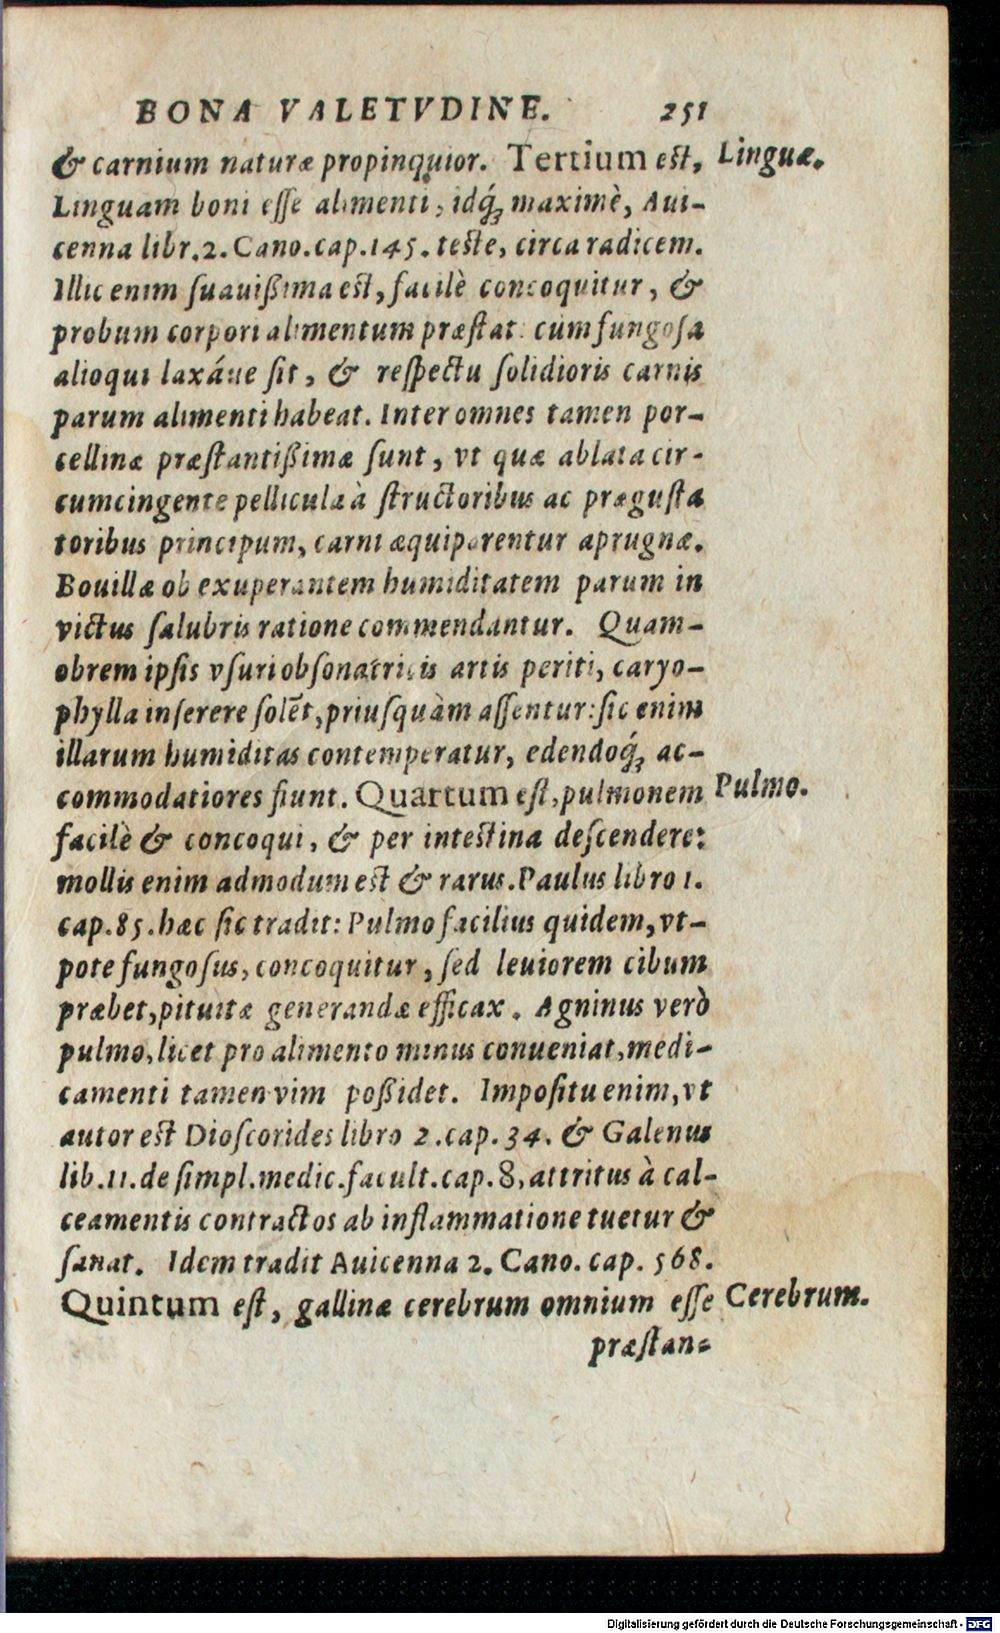 BONA VALETVDINE. 251
& carnium naturæ propinquior. Tertium est, Linguæ.
Linguam boni esse alimenti, idq́ꝫ maximè, Aui-
cenna libr.2. Cano.cap.145. teste, circa radicem.
Illic enim ſuauißima est, facilè concoquitur, &
probum corpori alimentum præſtat: cum fungoſa
alioqui laxáue ſit, & reſpectu ſolidioris carnis
parum alimenti habeat. Inter omnes tamen por-
cellinæ præſtantißimæ ſunt, vt quæ ablata cir-
cumcingente pellicula à ſtructoribus ac præguſta
toribus principum, carni æquiparentur aprugnæ.
Bouillæ ob exuperantem humiditatem parum in
victus ſalubris ratione commendantur. Quam-
obrem ipſis vſuri obſonatricis artis periti, caryo-
phylla inſerere ſolẽt, priuſquàm aſſentur: ſic enim
illarum humiditas contemperatur, edendoq́ꝫ ac-
commodatiores fiunt. Quartum eſt, pulmonem Pulmo.
facilè & concoqui, & per intestina deſcendere:
mollis enim admodum est & rarus. Paulus libro 1.
cap.85. hæc ſic tradit: Pulmo facilius quidem, vt-
pote fungoſus, concoquitur, ſed leuiorem cibum
præbet, pituitæ generandæ efficax. Agninus verò
pulmo, licet pro alimento minus conueniat, medi-
camenti tamen vim poßidet. Impoſitu enim, vt
autor est Dioſcorides libro 2.cap. 34. & Galenus
lib.11. de ſimpl.medic.facult.cap.8, attritus à cal-
ceamentis contractos ab inflammatione tuetur &
ſanat. Idem tradit Auicenna 2. Cano. cap. 568.
Quintum eſt, gallinæ cerebrum omnium eſſe Cerebrum.
præſtan-
Digitalisierung gefördert durch die Deutsche Forschungsgemeinschaft - DFG